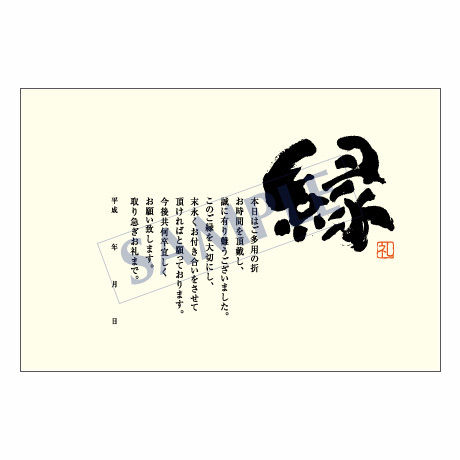 縁
礼
本日はご多用の折
お時間を頂戴し、
誠に有り難うございました。
このご縁を大切にし、
末永くお付き合いをさせて
頂ければと願っております。
今後共何卒宜しく
お願い致します。
取り急ぎお礼まで。
平成 年 月 日
SAMPLE